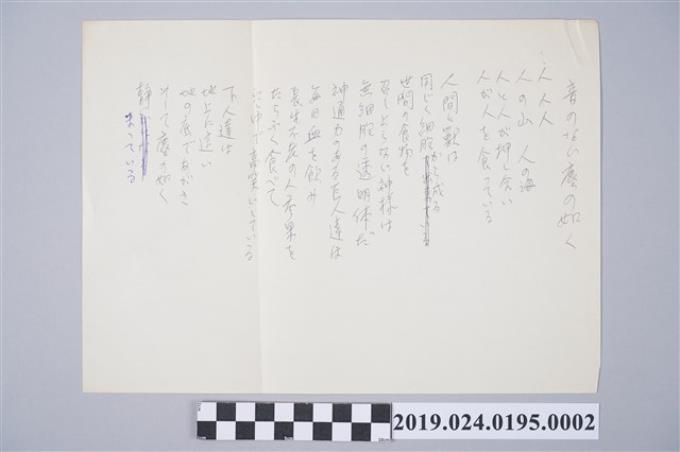 音のない塵の如く
人 人 人
人の山 人の海
人と人が押し合い
人が人を食っている
人間と獣は
同じく細胞から成る
世間の食物を
召し上らない神様は
無細胞の透明体だ
神通力のある巨人達は
毎日血を飲み
長生不老の人参果を
たらふく食べて
中で高笑いしている
下人達は
地上に這い
地の底であがき
そして塵の如く
静
まっている
2019.024.0195.0002